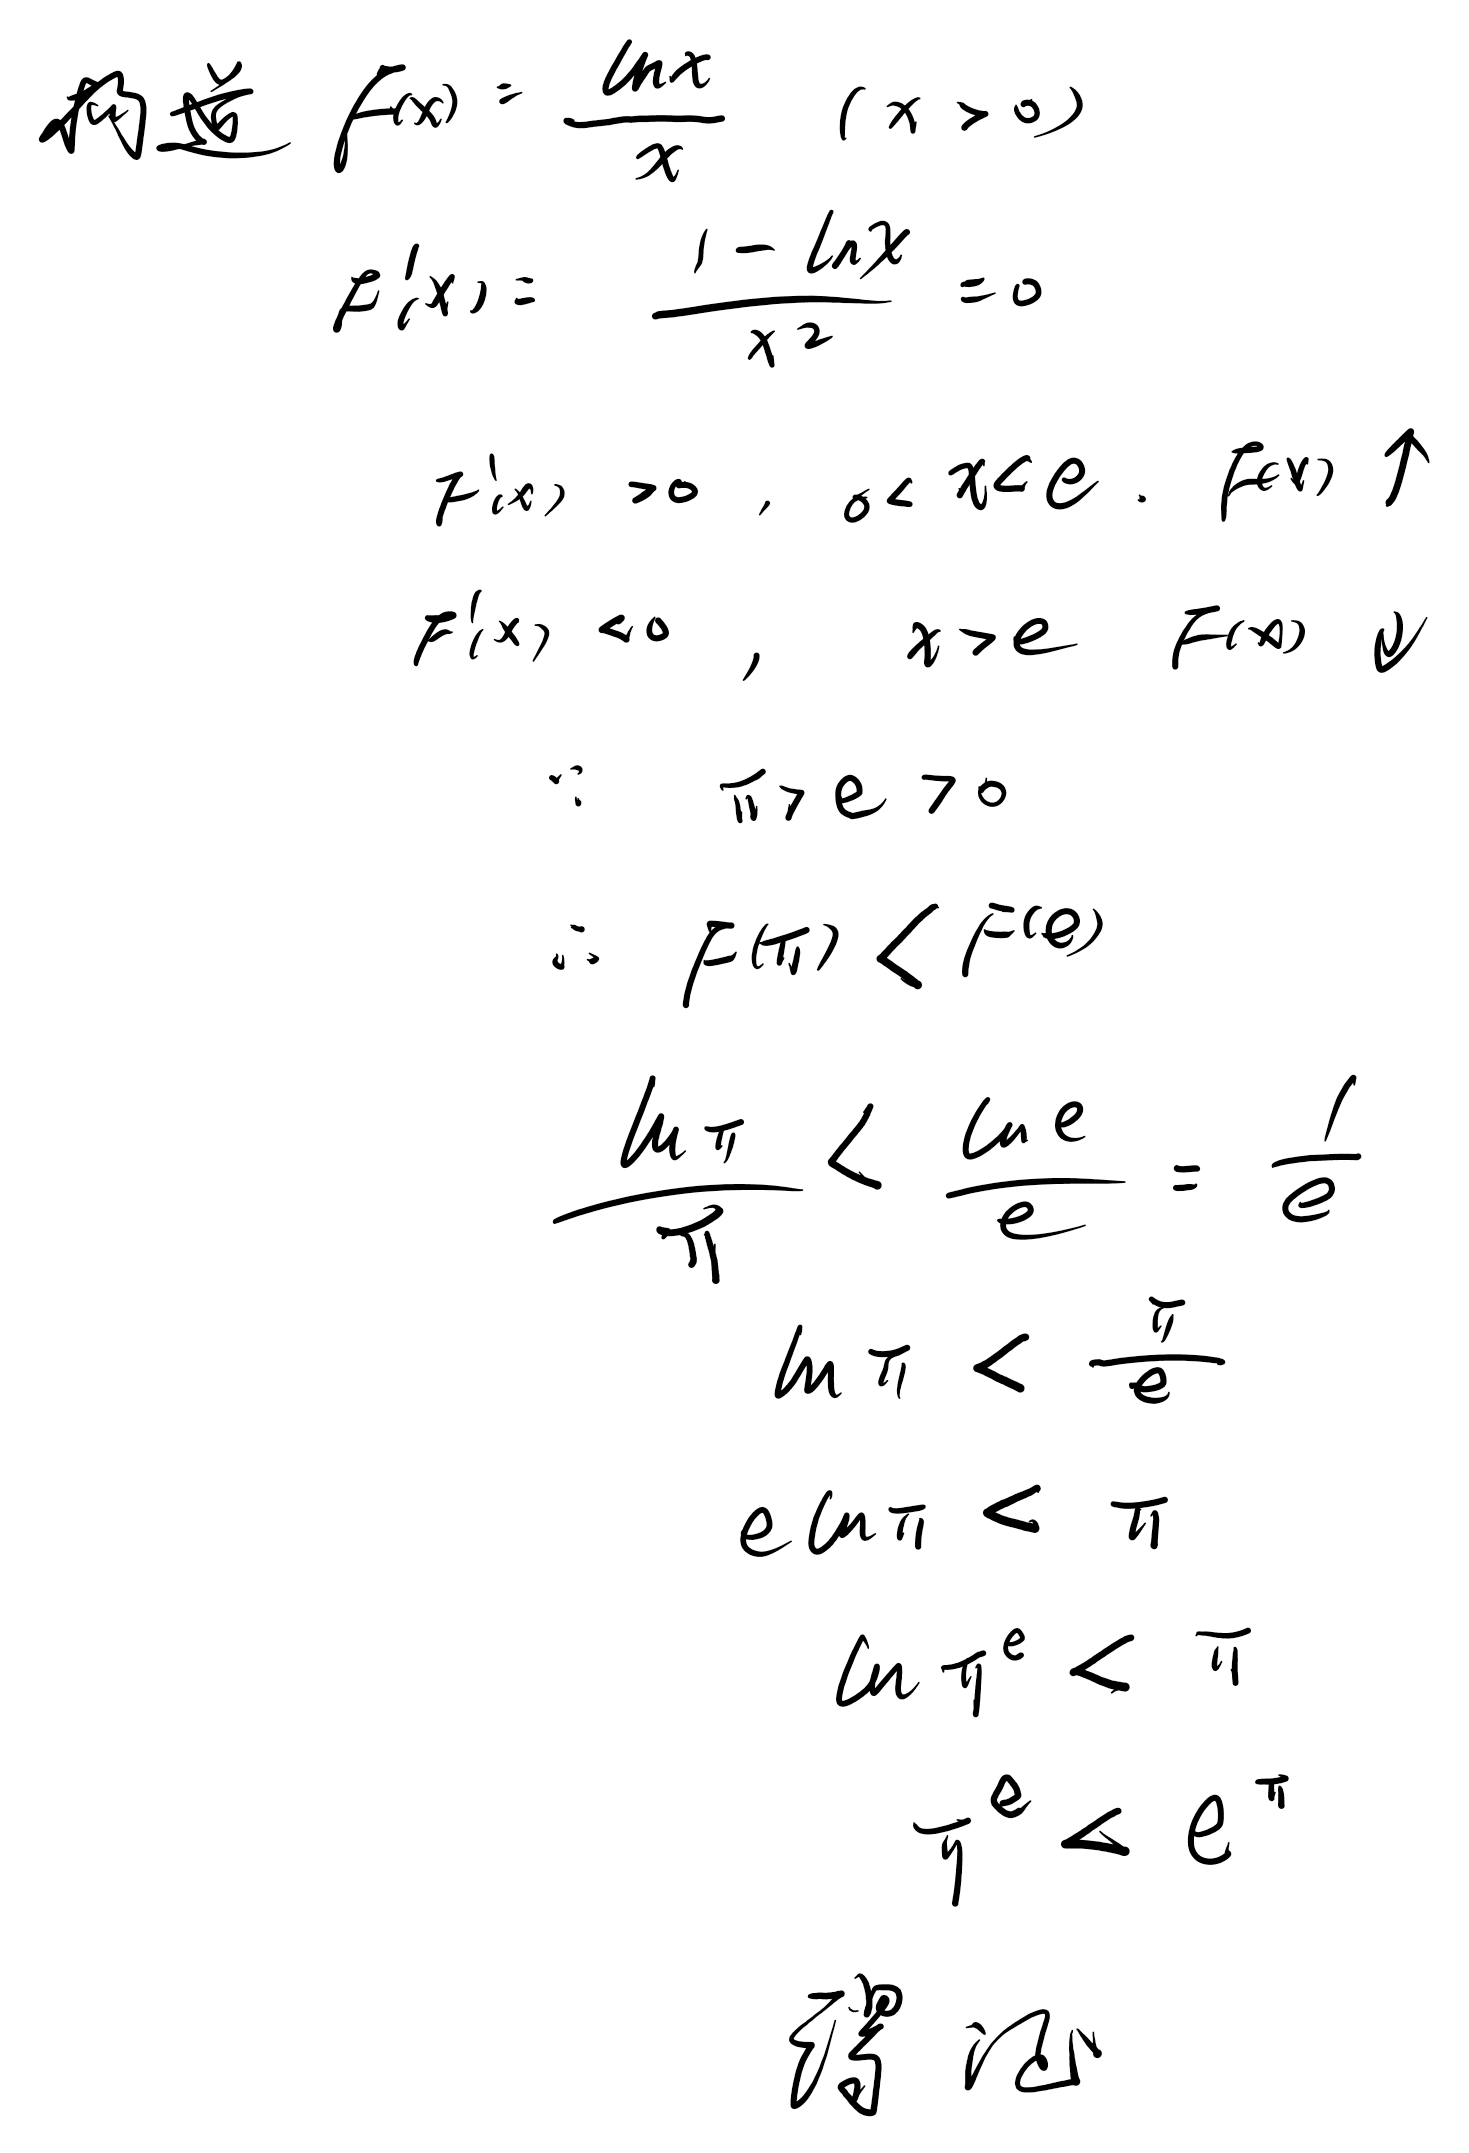 构造 F(x) = lnx / x (x > 0)
F'(x) = 1 - lnx / x² = 0
F'(x) > 0 , 0 < x < e . F(x) ↑
F'(x) < 0 , x > e F(x) ↓
∵ π > e > 0
∴ F(π) < F(e)
lnπ / π < lne / e = 1 / e
lnπ < π / e
e lnπ < π
ln π^e < π
π^e < e^π
得证